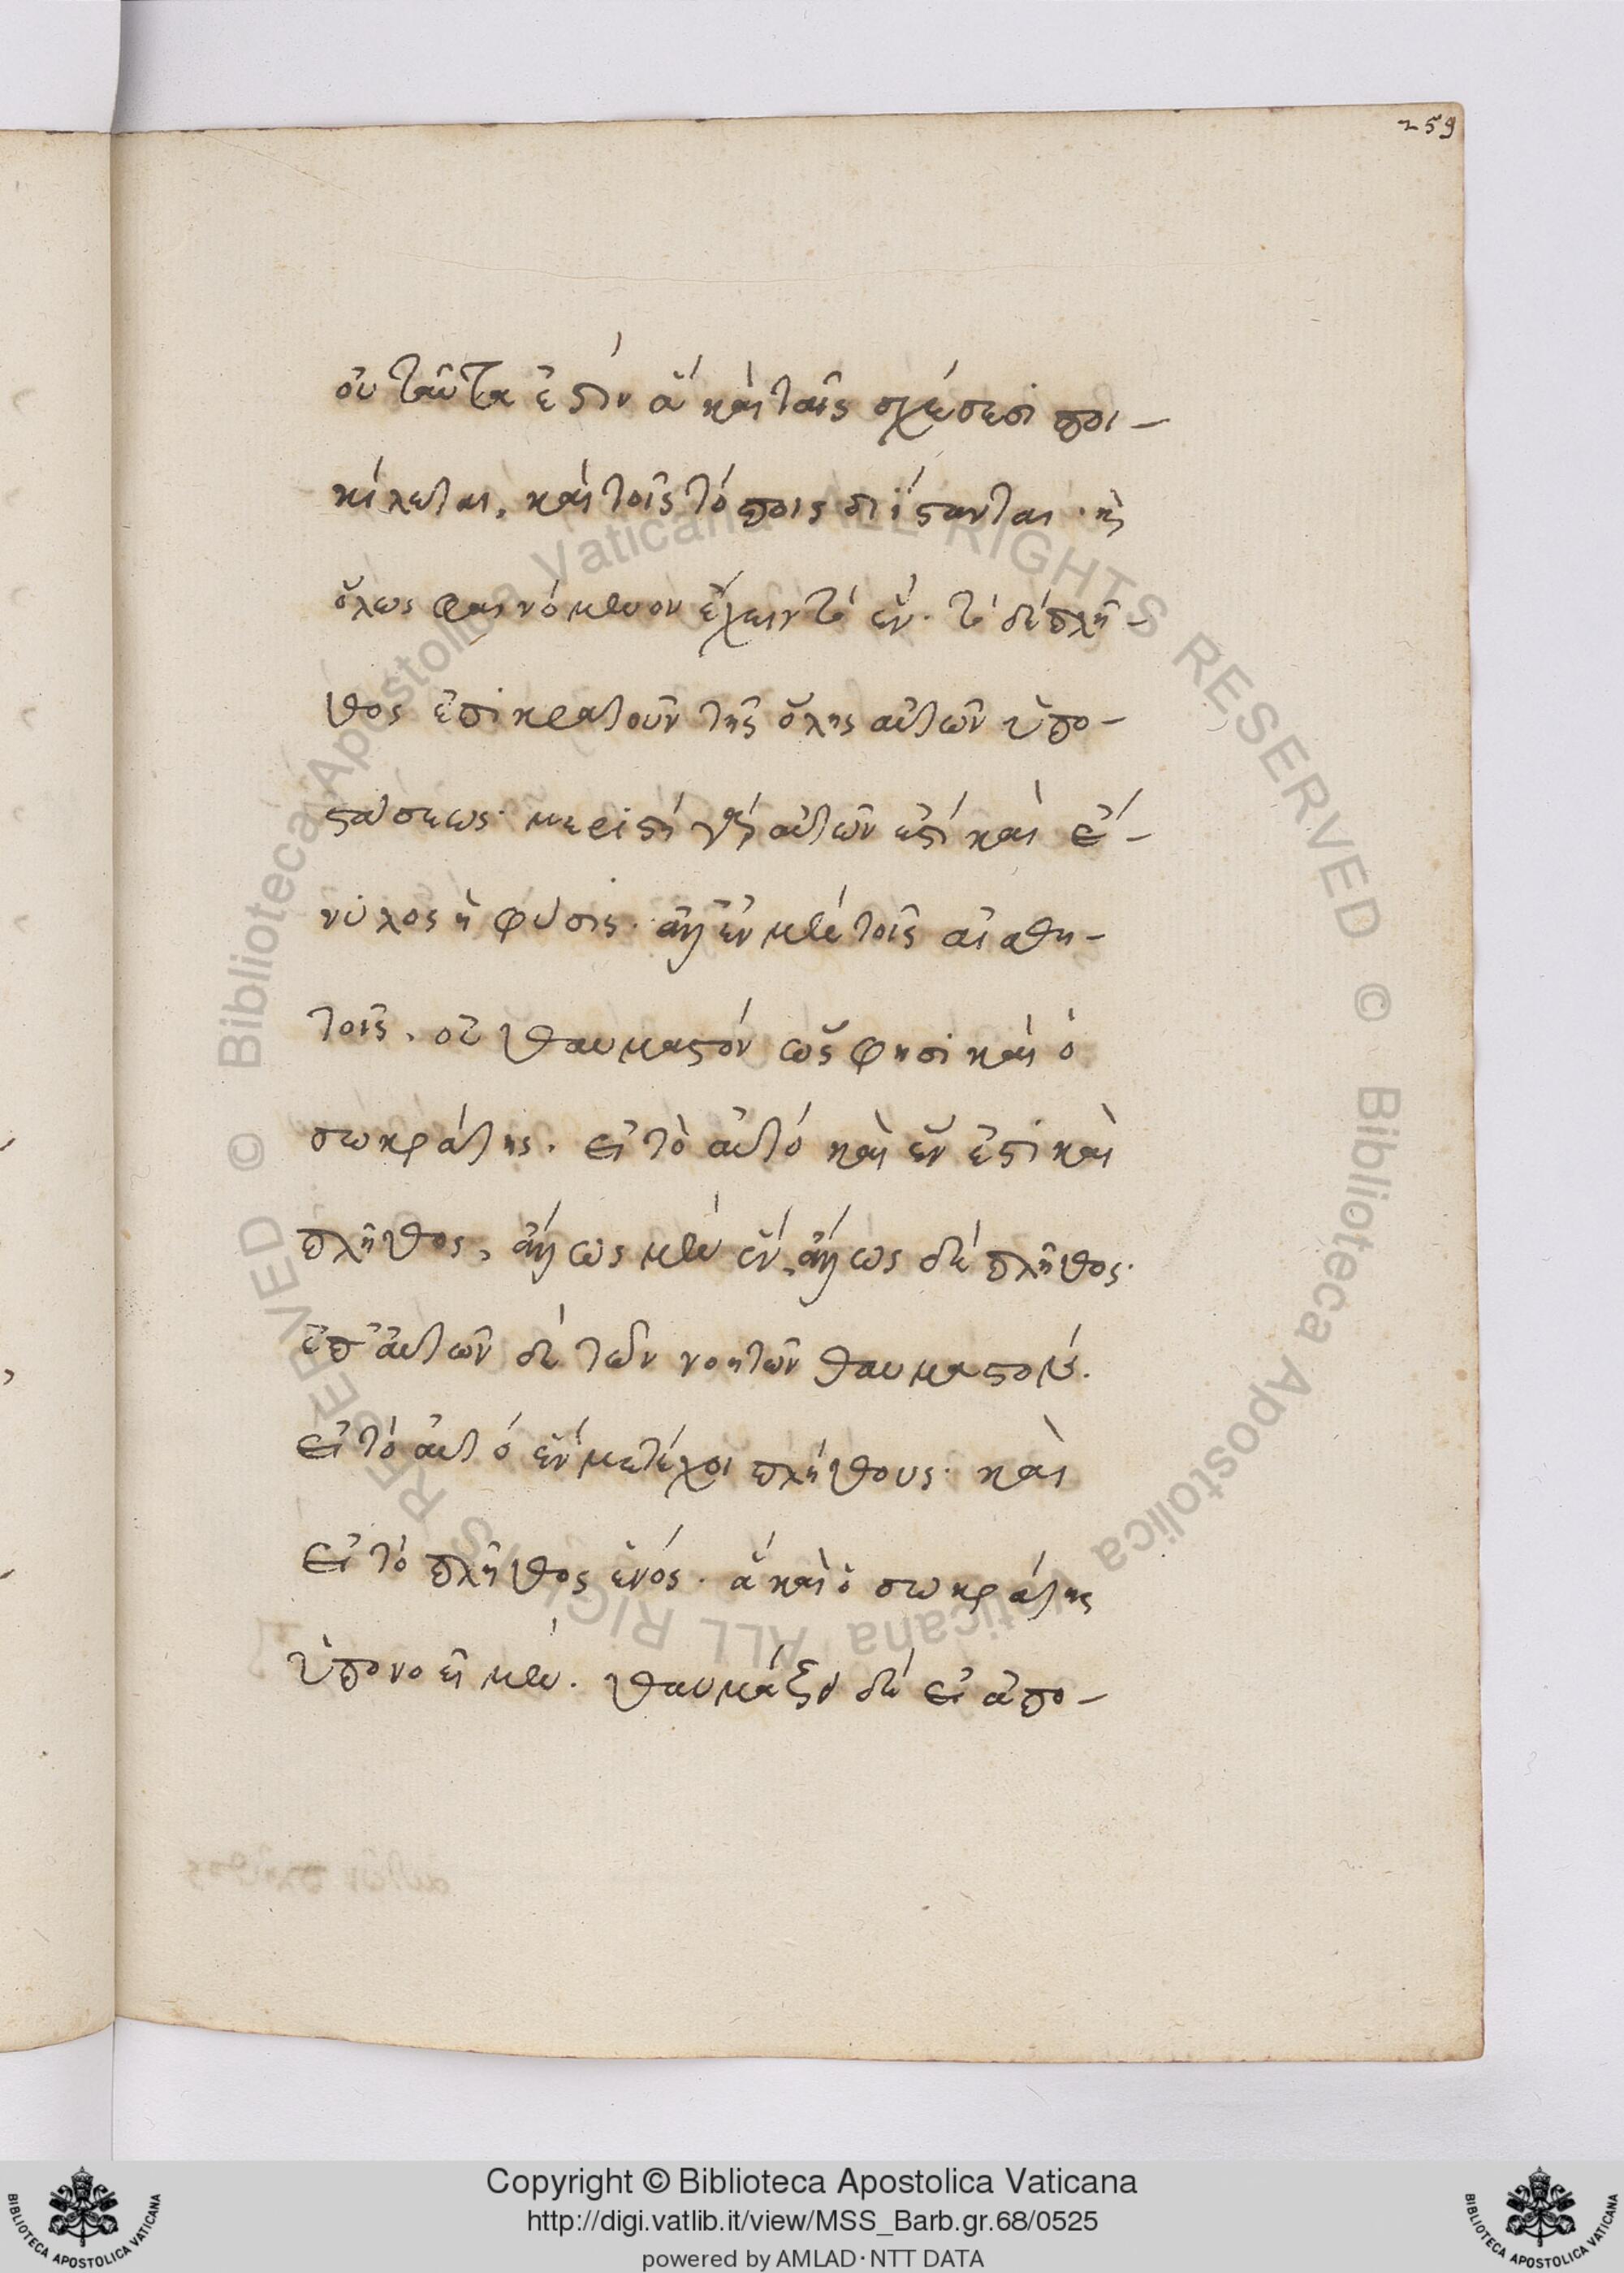 259
οὐ ταῦτα ἐστὶν ἃ καὶ ταῖς σχέσεσι ποι-
κίλεται, καὶ τοῖς τόποις διΐστανται · κὶ
ὅλως φαινόμενον ἔχειν τὸ ἕν · τὸ δὲ πλῆ-
θος ἐπικρατοῦν τῆς ὅλης αὐτῶν ὑπο-
στάσεως · μεριστή γὰρ αὐτῶν ἐστί καὶ ἔ-
νυλος ἡ φύσις · ἀλλ' ἐν μὲν τοῖς αἰσθη-
τοῖς, οὐ θαυμαστόν ὥς φησι καὶ ὁ
σωκράτης, εἰ τὸ αὐτό καὶ ἕν ἐστι καὶ
πλῆθος, ἄλλως μὲν ἕν, ἄλλως δὲ πλῆθος ·
ἐπ' αὐτῶν δὲ τῶν νοητῶν θαυμαστόν.
εἰ τὸ αὐτό ἕν μετέχοι πλήθους · καὶ
εἰ τὸ πλῆθος ἑνός · ἃ καὶ ὁ σωκράτης
ὑπονοεῖ μὲν. θαυμάζει δὲ εἰ ἀπο-
Copyright © Biblioteca Apostolica Vaticana
http://digi.vatlib.it/view/MSS_Barb.gr.68/0525
powered by AMLAD·NTT DATA
BIBLIOTECA APOSTOLICA VATICANA
BIBLIOTECA APOSTOLICA VATICANA
© Biblioteca Apostolica Vaticana ALL RIGHTS RESERVED © Biblioteca Apostolica Vaticana ALL RIGHTS RESERVED